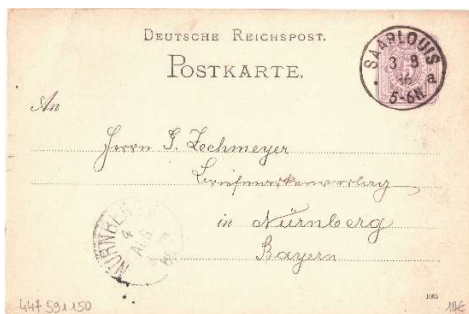 DEUTSCHE REICHSPOST.
POSTKARTE.
SAARLOUIS
3 8
86
a
5-6N
An
Herrn G. Zechmeyer
Briefmarkenverlag
in Nürnberg
Bayern
NÜRNBERG
4
AUG
447 591 150
10€